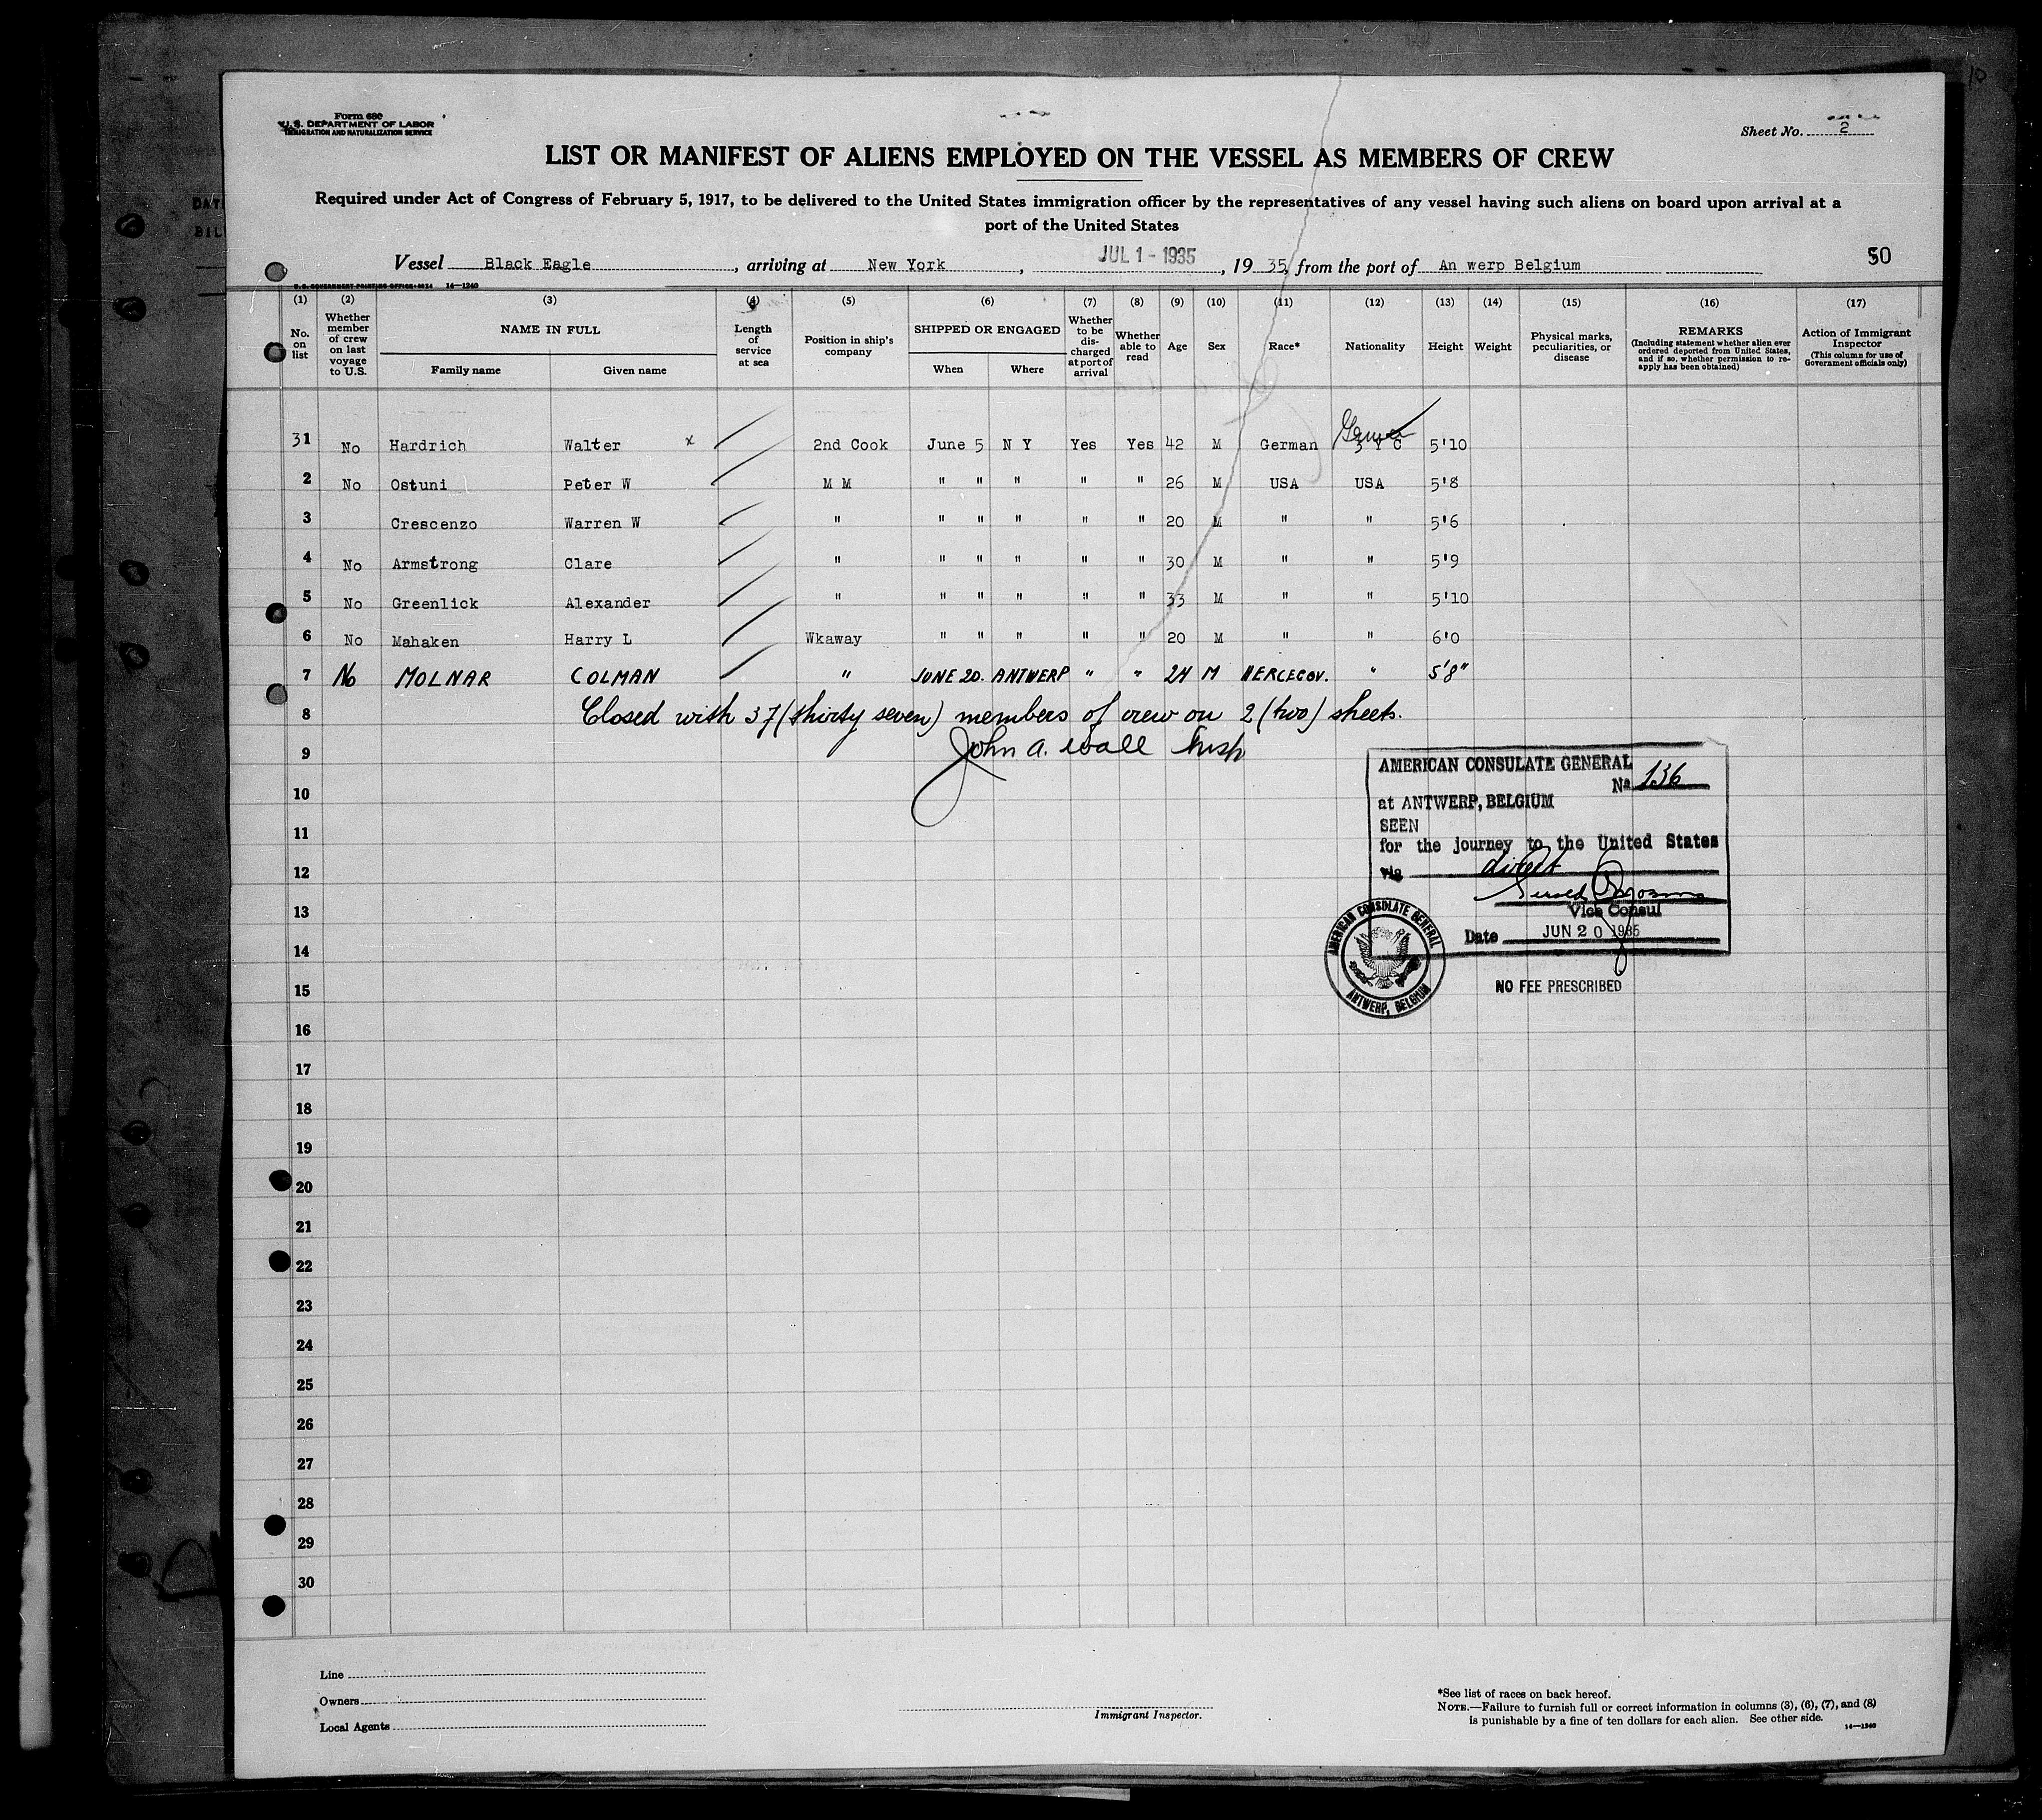 Form 680
U.S. DEPARTMENT OF LABOR
IMMIGRATION AND NATURALIZATION SERVICE
Sheet No. 2
LIST OR MANIFEST OF ALIENS EMPLOYED ON THE VESSEL AS MEMBERS OF CREW
Required under Act of Congress of February 5, 1917, to be delivered to the United States immigration officer by the representatives of any vessel having such aliens on board upon arrival at a
port of the United States
Vessel Black Eagle, arriving at New York, JUL 1 - 1935, 19 35, from the port of An werp Belgium 50
14—1240
(1) (2) (3) (4) (5) (6) (7) (8) (9) (10) (11) (12) (13) (14) (15) (16) (17)
No. on list
Whether member of crew on last voyage to U.S.
NAME IN FULL
Family name Given name
Length of service at sea
Position in ship's company
SHIPPED OR ENGAGED
When Where
Whether to be discharged at port of arrival
Whether able to read
Age Sex Race* Nationality Height Weight
Physical marks, peculiarities, or disease
REMARKS
(Including statement whether alien ever ordered deported from United States, and if so, whether permission to re-apply has been obtained)
Action of Immigrant Inspector
(This column for use of Government officials only)
31 No Hardrich Walter x 2nd Cook June 5 N Y Yes Yes 42 M German 5'10
2 No Ostuni Peter W M M " " " " " 26 M USA USA 5'8
3 Crescenzo Warren W " " " " " " 20 M " " 5'6
4 No Armstrong Clare " " " " " " 30 M " " 5'9
5 No Greenlick Alexander " " " " " " 33 M " " 5'10
6 No Mahaken Harry L Wkaway " " " " " 20 M " " 6'0
7 No MOLNAR COLMAN " JUNE 20. ANTWERP " " 24 M HERCEGOV. " 5'8"
8 Closed with 37 (thirty seven) members of crew on 2 (two) sheets.
9 John A. Wall
10
11
12
13
14
15
16
17
18
19
20
21
22
23
24
25
26
27
28
29
30
AMERICAN CONSULATE GENERAL
No. 136
at ANTWERP, BELGIUM
SEEN
for the journey to the United States
via direct
Vice Consul
Date JUN 20 1935
AMERICAN CONSULATE GENERAL
ANTWERP, BELGIUM
NO FEE PRESCRIBED
Line
Owners
Local Agents
Immigrant Inspector.
*See list of races on back hereof.
NOTE.—Failure to furnish full or correct information in columns (3), (6), (7), and (8)
is punishable by a fine of ten dollars for each alien. See other side.
14—1240